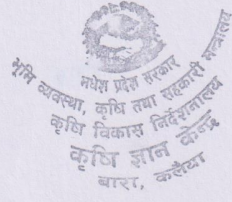 मधेश प्रदेश सरकार
भूमि व्यवस्था, कृषि तथा सहकारी मन्त्रालय
कृषि विकास निर्देशनालय
कृषि ज्ञान केन्द्र
बारा, कलैया